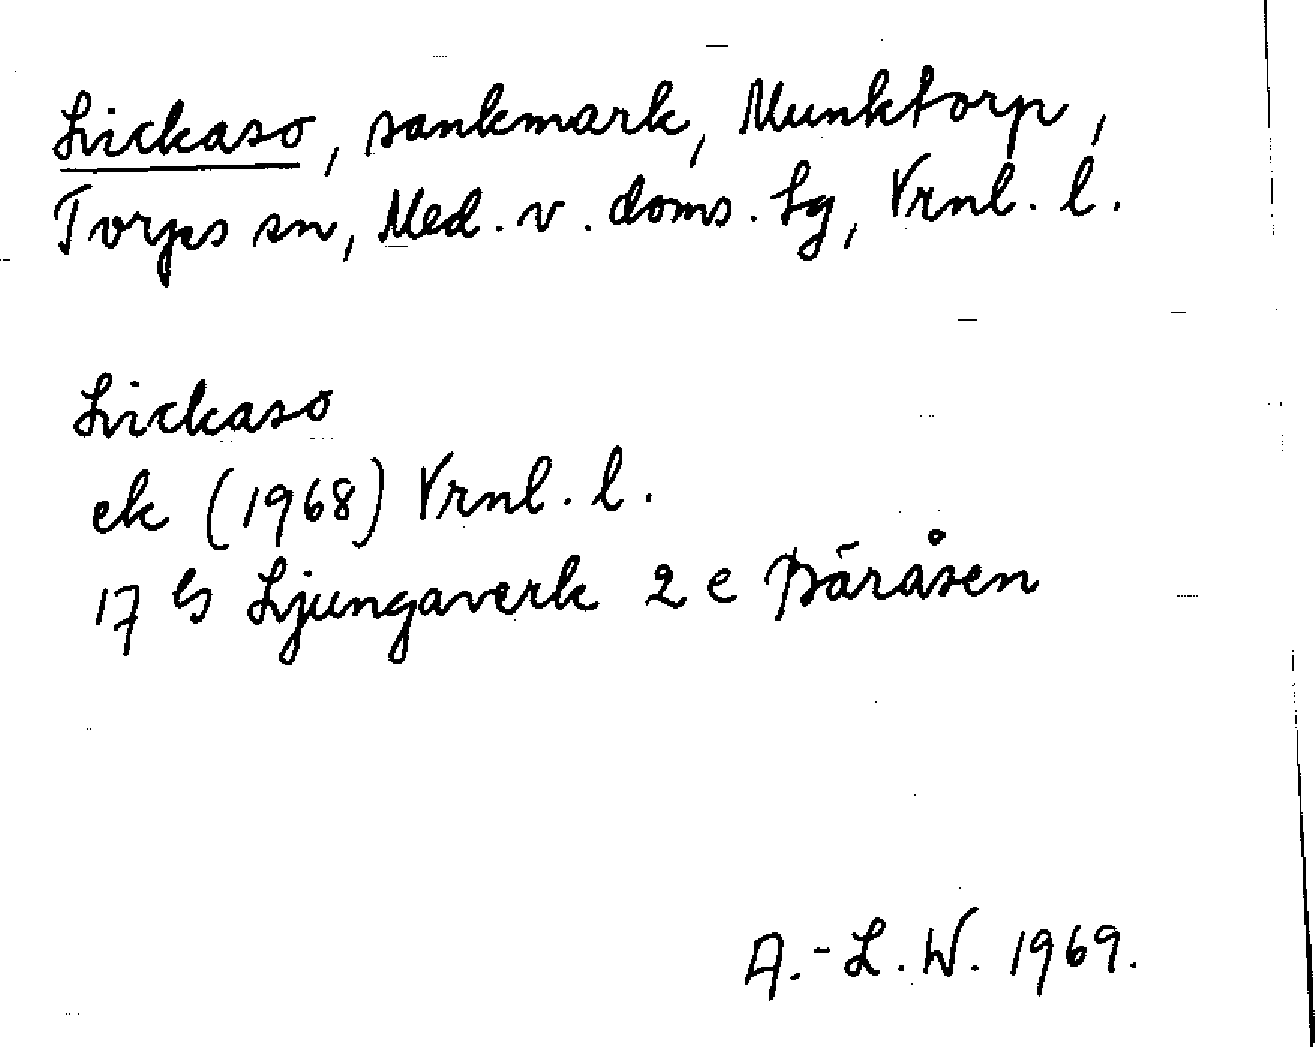 Lickaso, sankmark, Munktorp,
Torps sn, Med. v. doms. lg, Vrnl. l.
Lickaso
ek (1968) Vrnl. l.
17 G Ljungaverk 2 e Båråsen
A.-L.W. 1969.